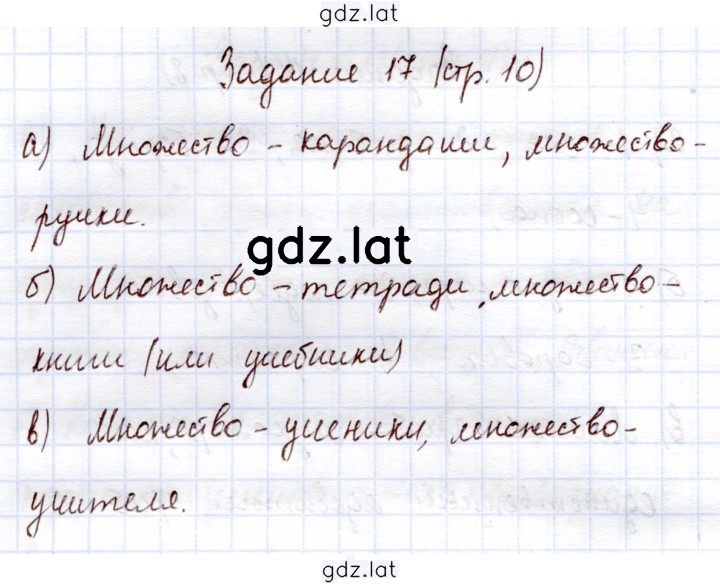 gdz.lat
Задание 17 (стр. 10)
а) Множество - карандаши, множество-
ручки.
gdz.lat
б) Множество - тетради, множество-
книги (или учебники)
в) Множество - ученики, множество-
учителя.
gdz.lat